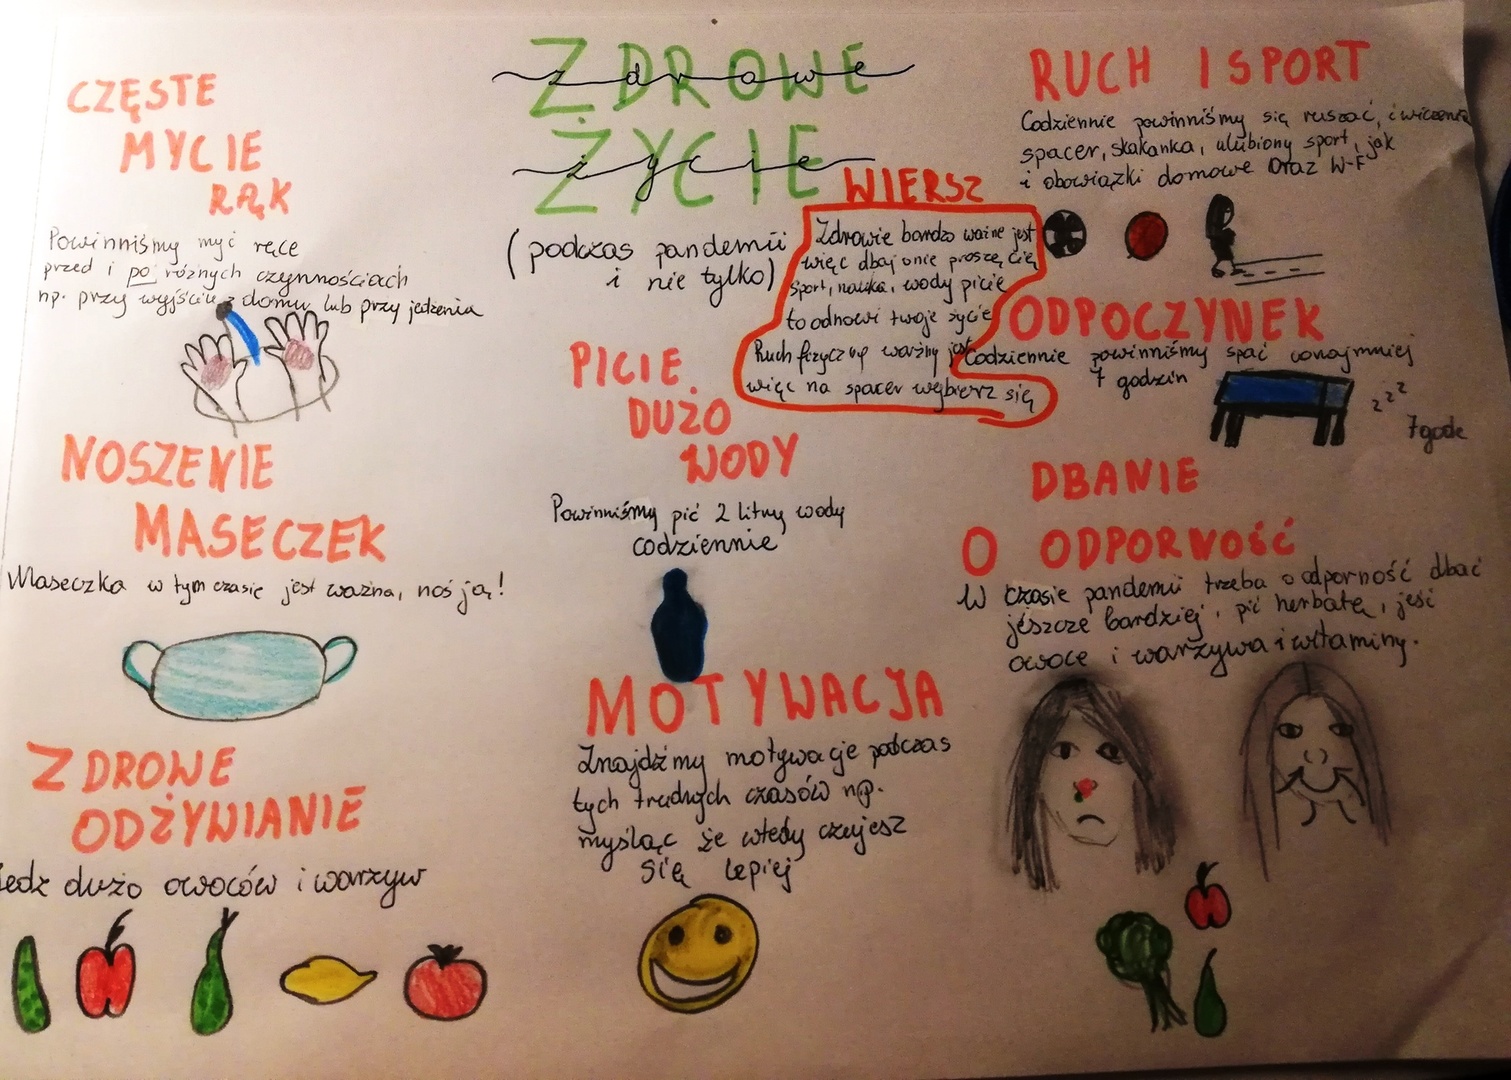 CZĘSTE
MYCIE
RĄK
Powinniśmy myć ręce
przed i po różnych czynnościach
np. przy wyjściu z domu lub przy jedzenia
NOSZENIE
MASECZEK
Maseczka w tym czasie jest ważna, noś ją!
ZDROWE
ODŻYWIANIE
Jedz dużo owoców i warzyw
ZDROWE
zdrowe
ŻYCIE
życie
(podczas pandemii
i nie tylko)
WIERSZ
Zdrowie bardzo ważne jest
więc dbaj o nie proszę Cię
Sport, nauka, wody picie
to odnowi twoje życie
Ruch fizyczny ważny jest
więc na spacer wybierz się
PICIE
DUŻO
WODY
Powinniśmy pić 2 litry wody
codziennie
MOTYWACJA
Znajdźmy motywacje podczas
tych trudnych czasów np.
myśląc że wtedy czujesz
się lepiej
RUCH I SPORT
Codziennie powinniśmy się ruszać, ćwiczenia
spacer, skakanka, ulubiony sport, jak
i obowiązki domowe oraz W-F
ODPOCZYNEK
Codziennie powinniśmy spać conajmniej
7 godzin
zzz
7godz
DBANIE
O ODPORNOŚĆ
W czasie pandemii trzeba o odporność dbać
jeszcze bardziej, pić herbatę, jeść
owoce i warzywa i witaminy.